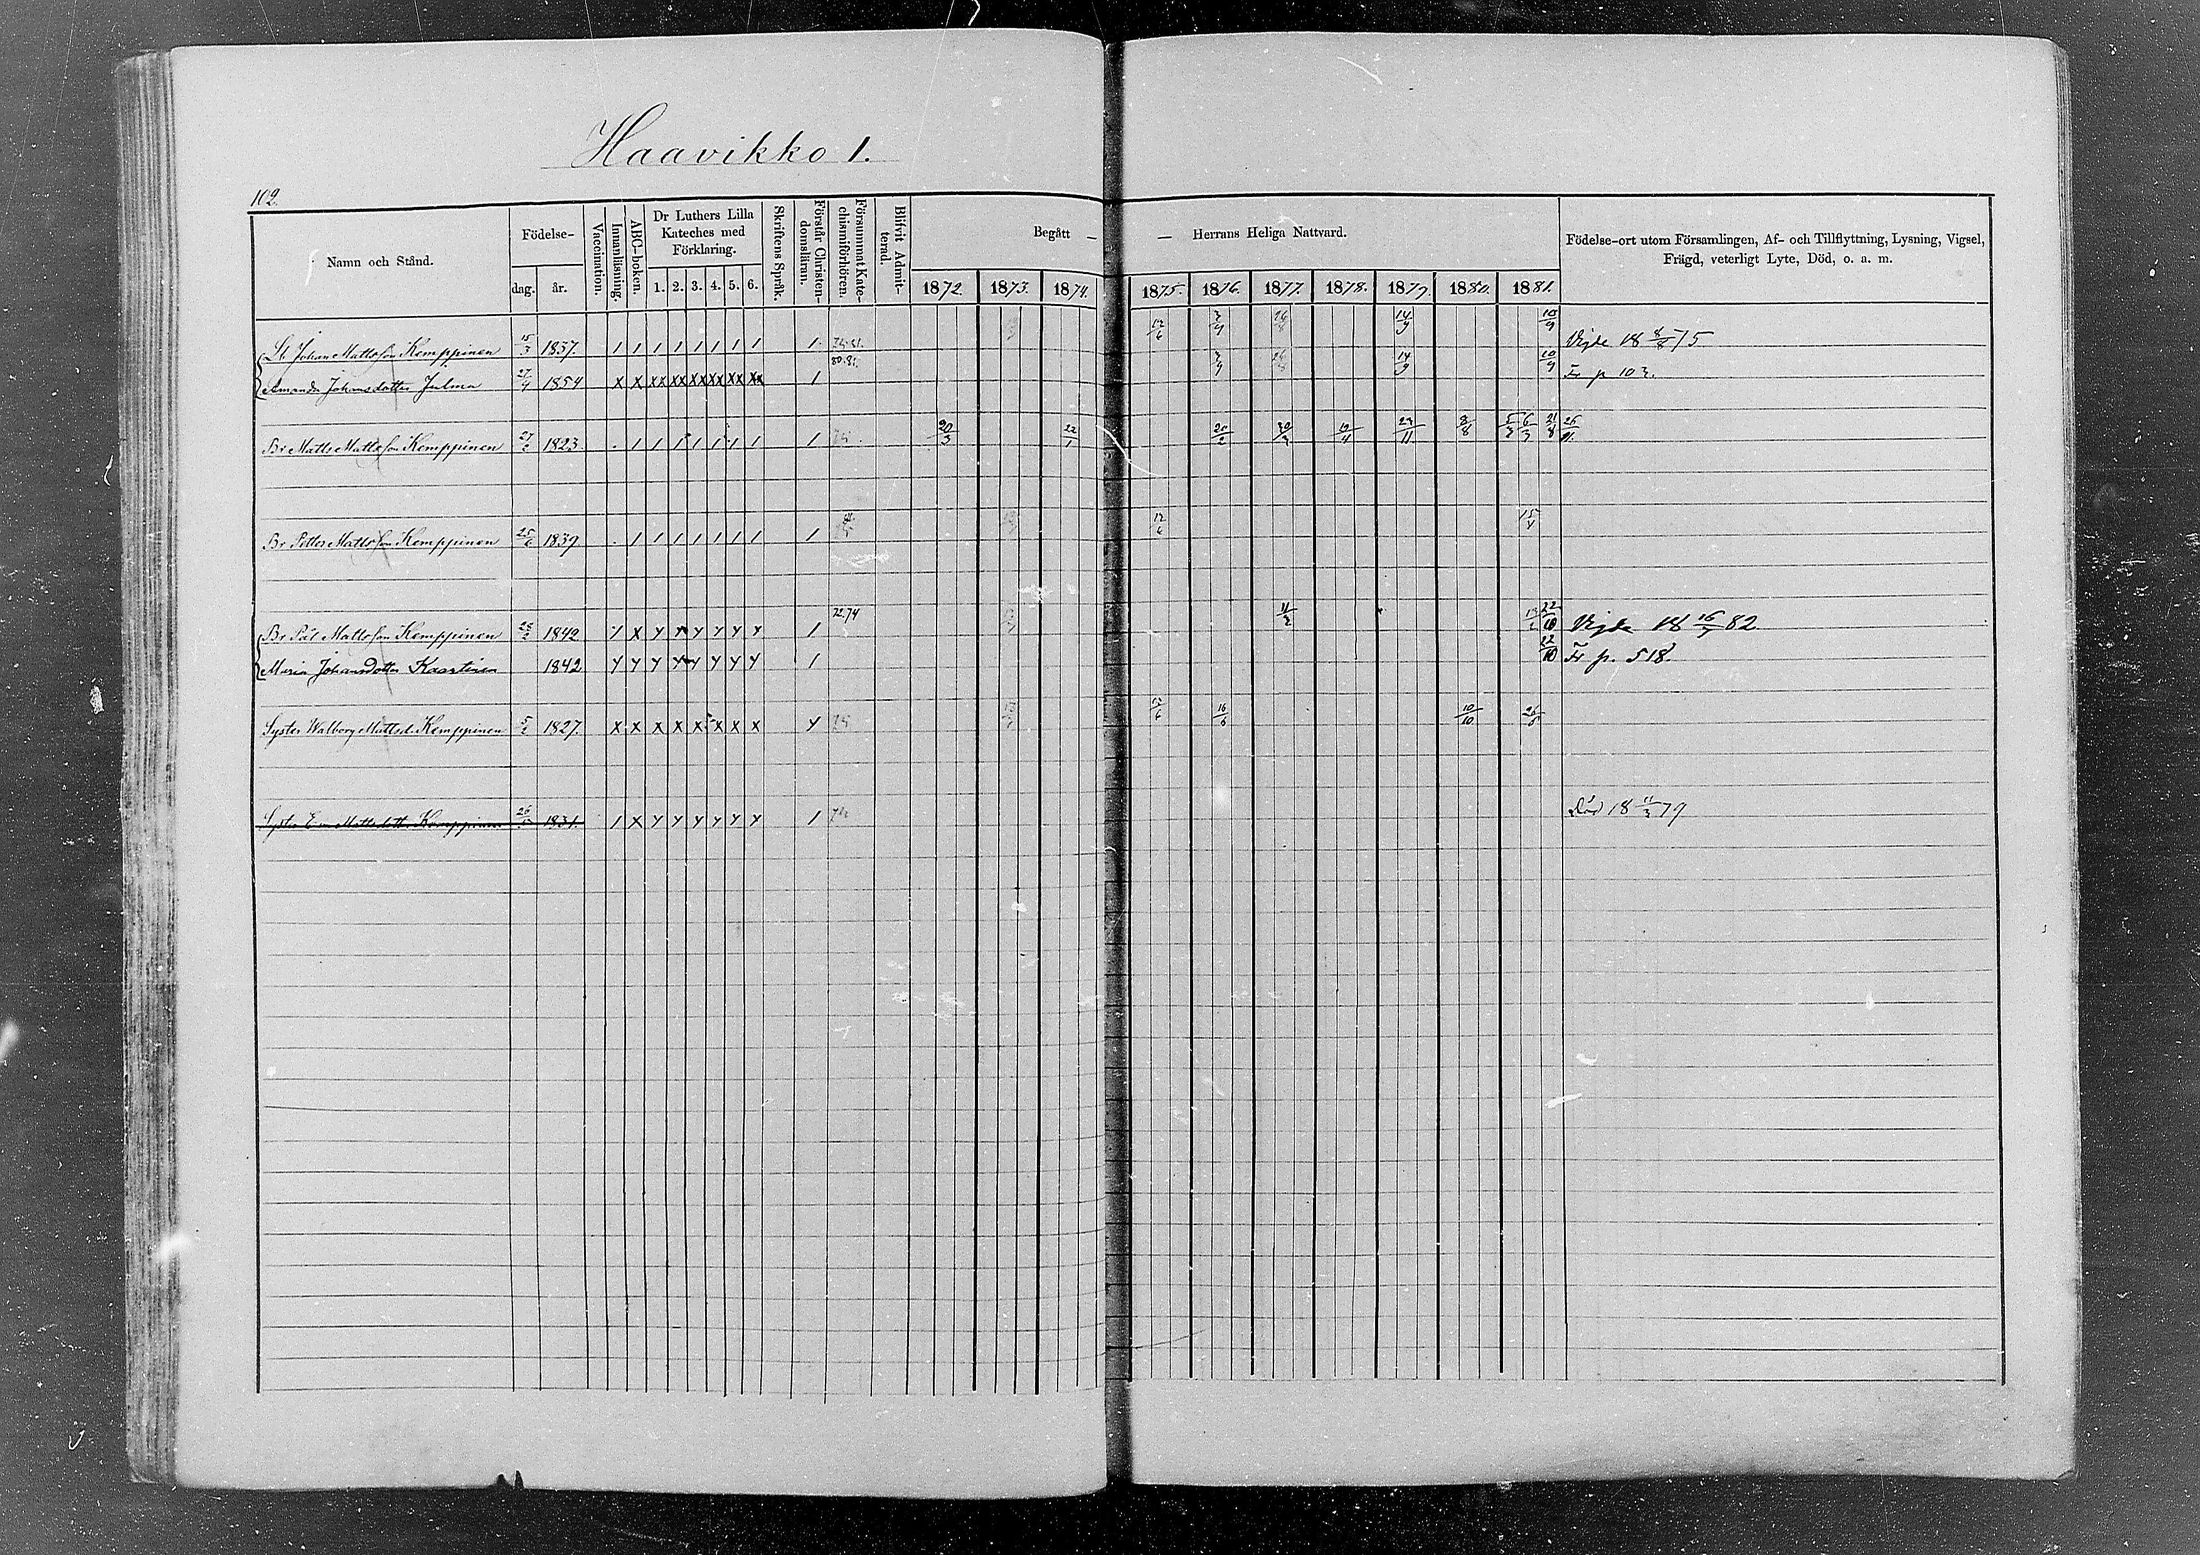 Haavikko 1.
102.
Namn och Stånd. Födelse- dag. år. Vaccination. Innanläsning. ABC-boken. Dr Luthers Lilla Kateches med Förklaring. 1. 2. 3. 4. 5. 6. Skriftens Språk. Förstår Christendomsläran. Försummat Katechismiförhören. Blifvit Admitterad. Begått — — Herrans Heliga Nattvard. 1872. 1873. 1874. 1875. 1876. 1877. 1878. 1879. 1880. 1881. Födelse-ort utom Församlingen, Af- och Tillflyttning, Lysning, Vigsel, Frägd, veterligt Lyte, Död, o. a. m.
Johan Mattsson Kemppinen 15/3 1837. 1 1 1 1 1 1 1 1 1 12/6 14/9 10/9 Vigde 18 8/8 75
Amanda Johansdotter Julma 27/4 1854 x x xx xx xx xx xx xx 1 80.81. 14/9 10/9 Fr p 103.
Br Matts Mattsson Kemppinen 27/2 1823. . 1 1 1 1 1 1 1 1 20/3 22/1 20/2 19/4 23/11 8/8 6/3 21/8
Br Petter Mattsson Kemppinen 25/6 1839 . 1 1 1 1 1 1 1 1 12/6 15/4
Br Pål Mattsson Kemppinen 28/2 1842 y x y y y y y y 1 72.74 11/2 22/10 Vigde 18 16/7 82
Maria Johansdotter 1842 y y y y y y y y 1 22/10 Fr p. 518.
Syster Walborg Mattsd. Kemppinen 5/2 1827. x x x x x x x x y 12/6 16/6 10/10 26/6
Syster Eva Mattsdotter Kemppinen 26/5 1831. 1 x y y y y y y 1 74 Död 18 11/3 79